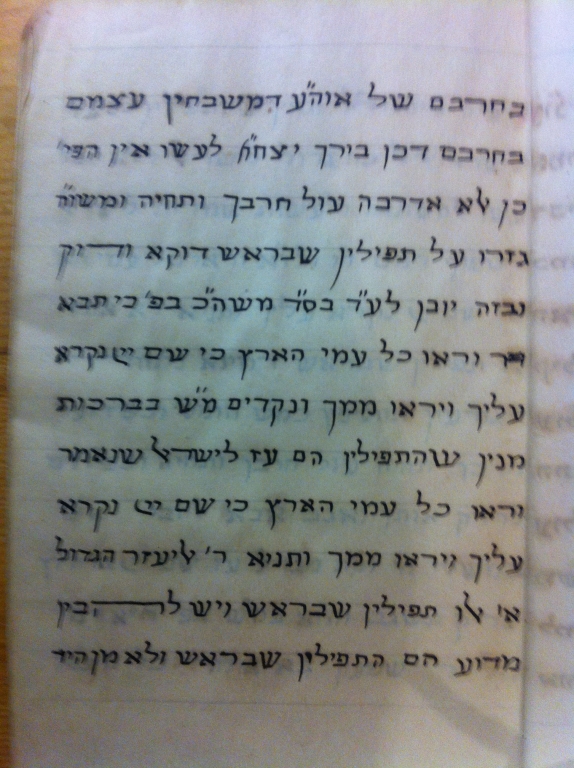 בחרבם של אוה"ע דמשבחין עצמם
בחרבם דכן בירך יצח"ק לעשו אין הדבר
כן לא אדרבה עול חרבך ותחיה ומשו"ה
גזרו על תפילין שבראש דוקא ודוק
ובזה יובן לע"ד בס"ד משה"כ בפ' כי תבא
וראו כל עמי הארץ כי שם יי נקרא
עליך ויראו ממך ונקדים מ"ש בברכות
מנין שהתפילין הם עז לישראל שנאמר
וראו כל עמי הארץ כי שם יי נקרא
עליך ויראו ממך ותניא ר' אליעזר הגדול
א' אלו תפילין שבראש ויש להבין
מדוע הם התפילין שבראש ולא מן היד